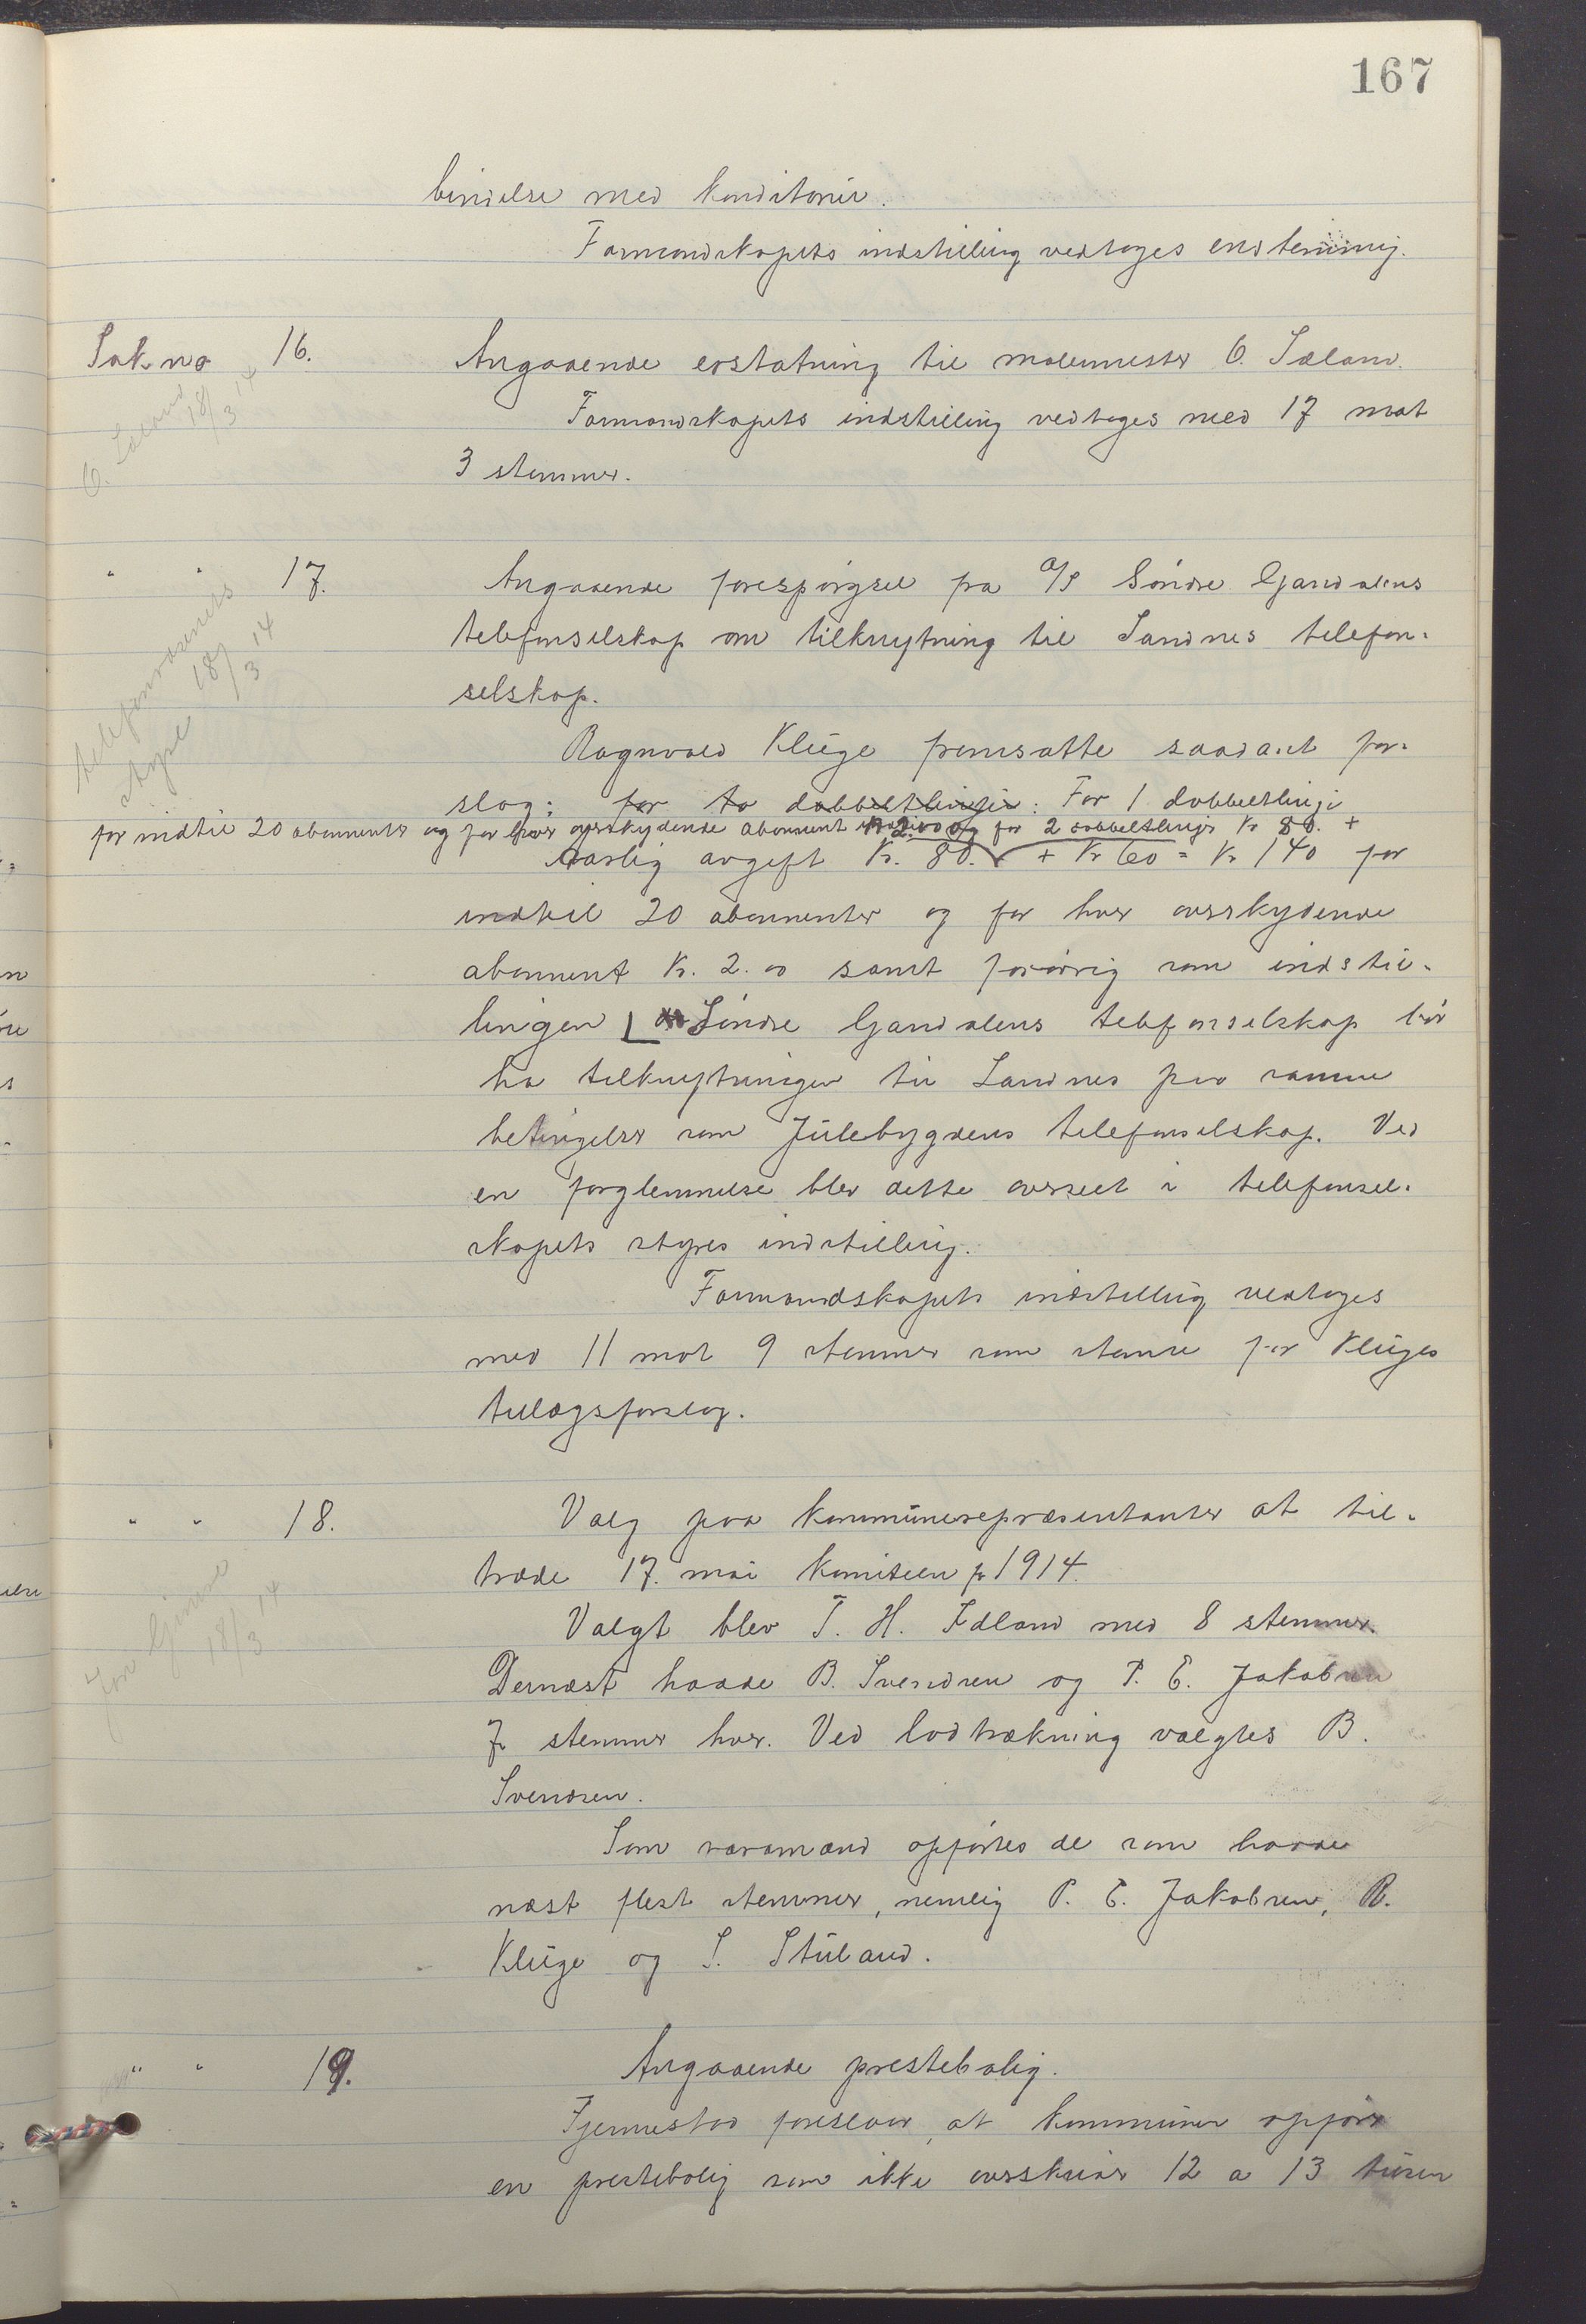 167
bindelse med konditorier.
Formandskapets indstilling vedtages enstemmig.
Sak no 16. Angaaende erstatning til malermester O. Sæland.
O. Sæland 18/3 14
Formandskapets indstilling vedtages med 17 mot
3 stemmer.
" " 17. Angaaende forespørgsel fra A/S Söndre Gjandalens
telefonselskap om tilknytning til Sandnes telefon-
selskap.
telefonvæsenets styre 18/3 14
Ragnvald Kluge fremsatte saadant for-
slag: for to dobbeltlinjer: For 1 dobbeltlinje
for indtil 20 abonnenter og for hver overskydende abonnent kr 2.00 og for 2 dobbeltlinjer kr 80. +
aarlig avgift kr. 80. + kr 60 = kr 140 for
indtil 20 abonnenter og for hver overskydende
abonnent kr. 2.00 samt forövrig som indstil-
lingen Söndre Gjandalens telefonselskap bör
ha tilknytningen til Sandnes paa samme
betingelser som Julebygdens telefonselskap. Ved
en forglemmelse blev dette overseet i telefonsel-
skapets styres indstilling.
Formandskapets indstilling vedtages
med 11 mot 9 stemmer som stemte for Kluges
tillægsforslag.
" " 18. Valg paa kommunerepræsentanter at til-
træde 17. mai komiteen for 1914.
18/3 14
Valgt blev T. H. Idland med 8 stemmer.
Dernæst hadde B. Svendsen og P. E. Jakobsen
7 stemmer hver. Ved lodtrækning valgtes B.
Svendsen.
Som varamænd opförtes de som hadde
næst flest stemmer, nemlig P. E. Jakobsen, R.
Kluge og S. Stuland.
" " 19. Angaaende prestebolig.
Fjermestad foreslaar, at kommunen opförer
en prestebolig som ikke overskrider 12 a 13 tusen